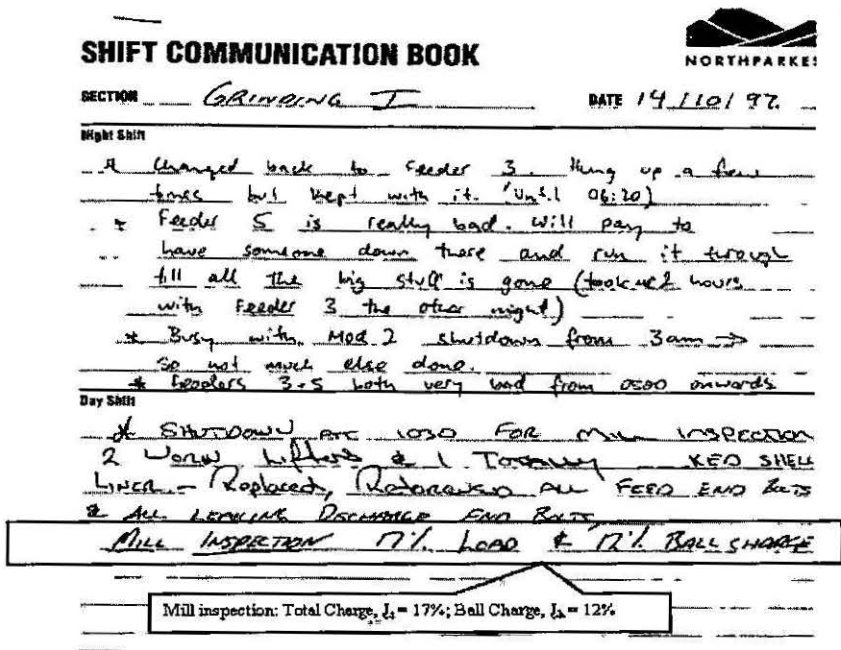 SHIFT COMMUNICATION BOOK
NORTHPARKES
SECTION GRINDING I DATE 14/10/97.
Night Shift
* Changed back to feeder 3. Hung up a few
times but kept with it. (until 06:20)
* Feeder 5 is really bad. Will pay to
have someone down there and run it through
till all the big stuff is gone (took 2 hours
with Feeder 3 the other night)
* Busy with Mod 2 shutdown from 3am →
so not much else done.
* Feeders 3+5 both very bad from 0500 onwards
Day Shift
* SHUTDOWN 1030 FOR MILL INSPECTION
2 WORN Lifters & 1 TOTALLY SHELL
LINER - Replaced, ALL FEED END BOLTS
& ALL LEAKING DISCHARGE END BOLTS
MILL INSPECTION 17% LOAD & 12% BALL CHARGE
Mill inspection: Total Charge, Jt = 17%; Ball Charge, Jb = 12%